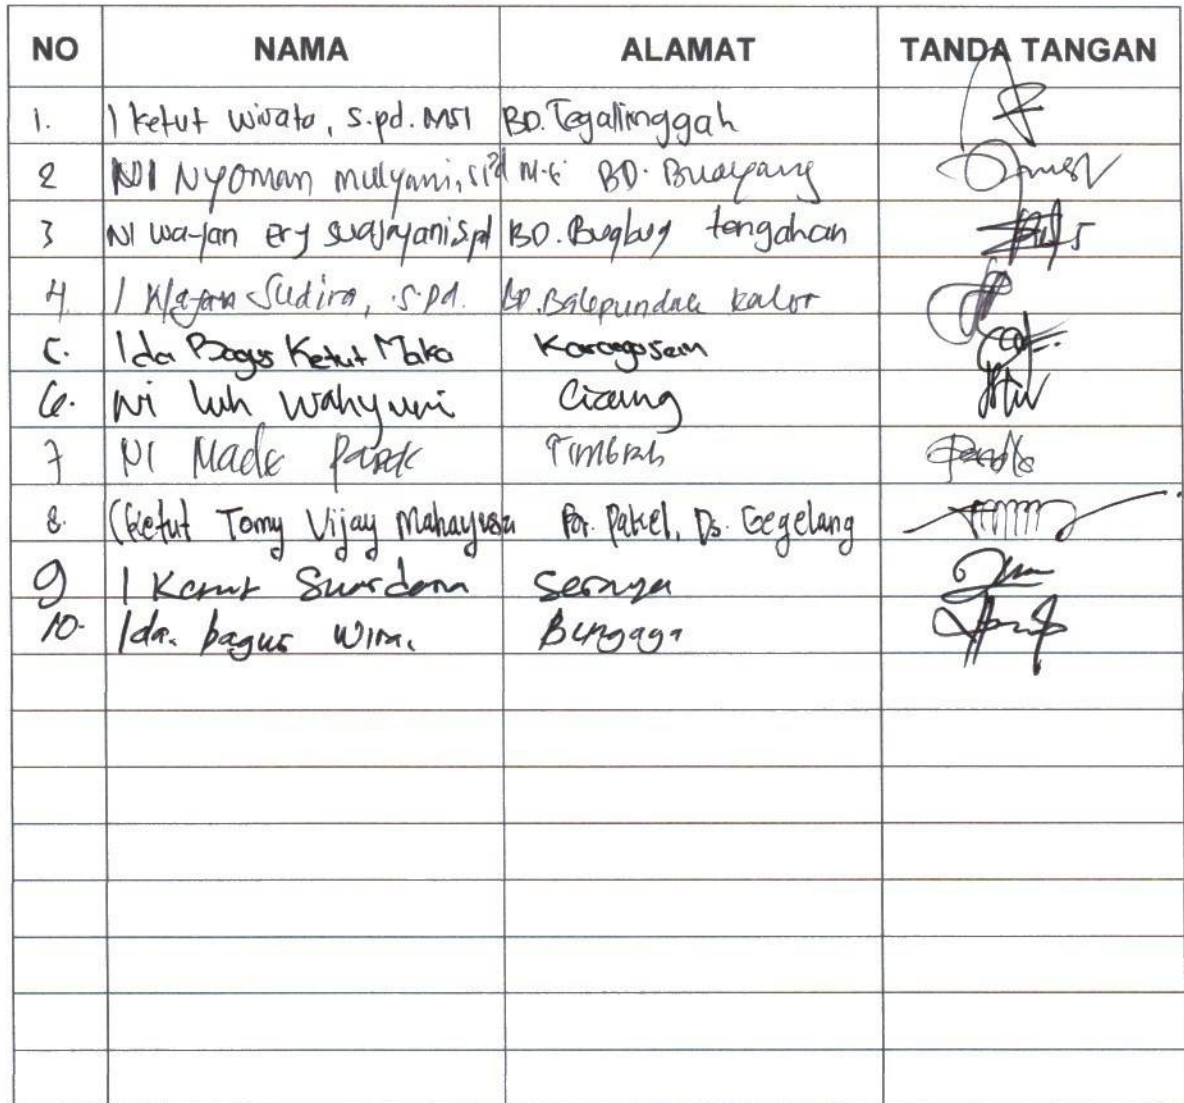 NO NAMA ALAMAT TANDA TANGAN
1. I ketut wirata, S.pd. MSI BD. Tegallinggah
2 NI NYOMAN mulyani, BD. Buayang
3 NI wayan ery swajayani S.pd BD. Bugbug tengahan
4. I Wayan Sudira, S.Pd. BD. Balepundak kalor
5. Ida Bagus Ketut Mako
6. Ni luh wahyuni
7 NI Made TIMBRAH
8. I Ketut Tomy Vijay Pakel, Ds. Gegelang
9 I Ketut Suardana Seraya
10. Ida. bagus wira. Bungaya